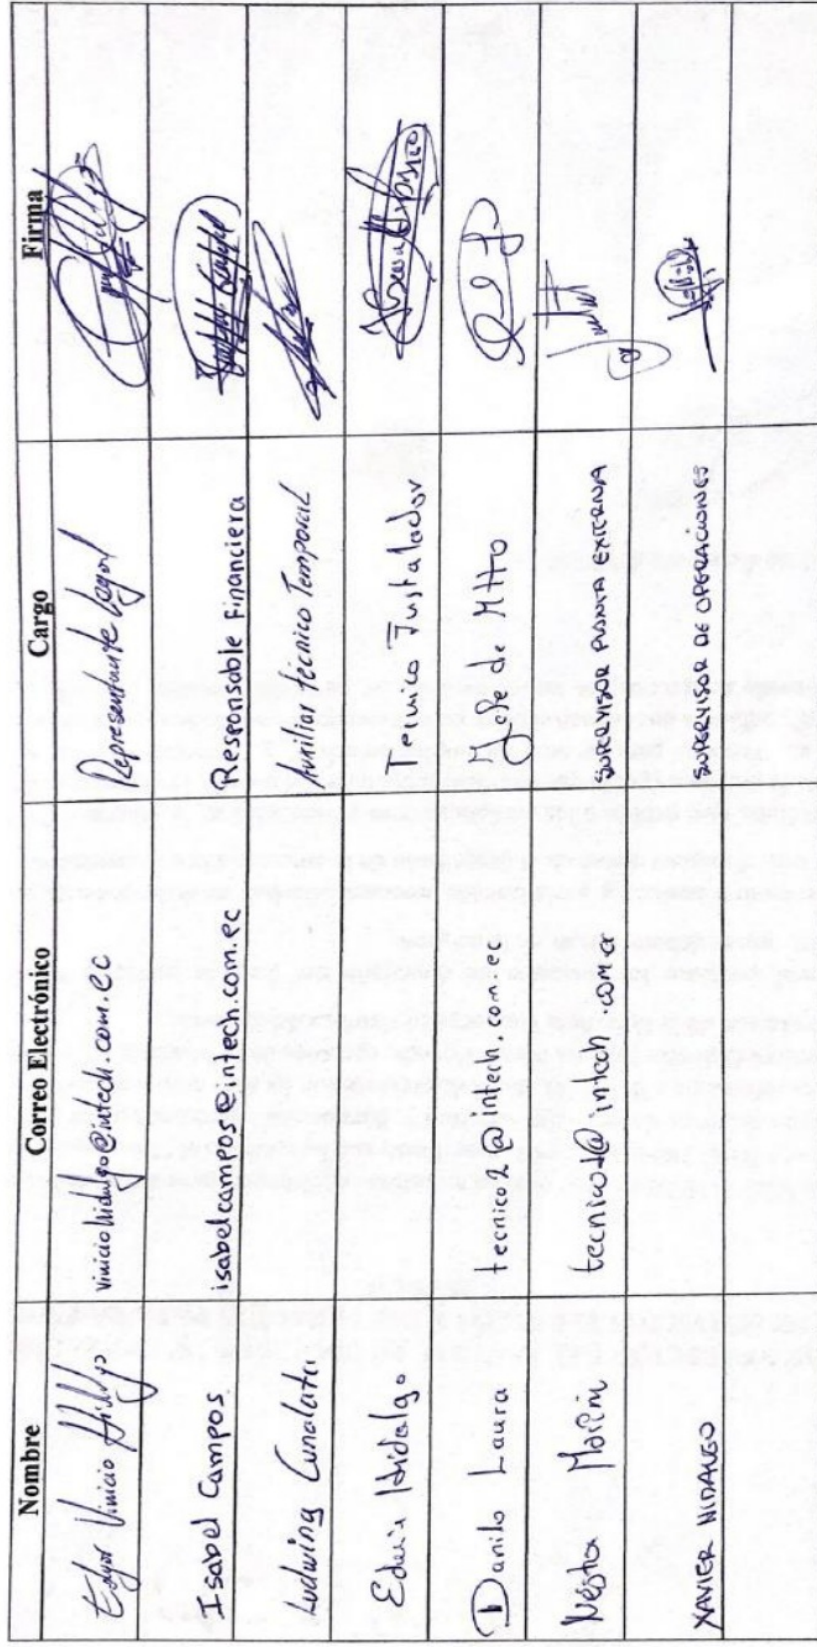 Nombre Correo Electrónico Cargo Firma
Edgar Vinicio Hidalgo viniciohidalgo@intech.com.ec Representante Legal
Isabel Campos isabelcampos@intech.com.ec Responsable Financiera
Ludwing Cunalata Auxiliar técnico Temporal
Edwin Hidalgo Tecnico Instalador
Danilo Laura tecnico2@intech.com.ec Jefe de Mtto
Nestor Marin @intech.com.ec SUPERVISOR PLANTA EXTERNA
XAVIER HIDALGO SUPERVISOR DE OPERACIONES